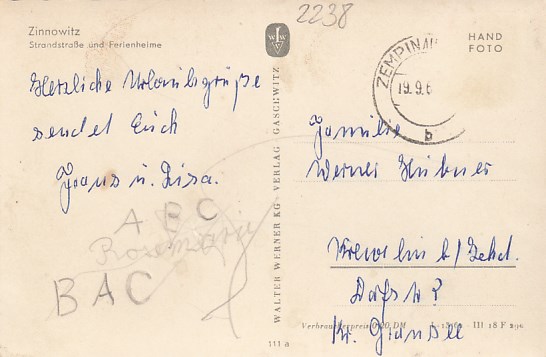 2238
Zinnowitz
Strandstraße und Ferienheime
HAND
FOTO
ZEMPIN
19.9.6
b
Herzliche Urlaubsgrüße
sendet Euch
Hans u. Lisa.
Familie
Werner Hübner
b/Zehd.
Dorfstr
Kr. Gransee
A B C
Rosemarie
B A C
WALTER WERNER KG VERLAG GASCHWITZ
111 a
Verbraucherpreis 0,20 DM
III 18 F